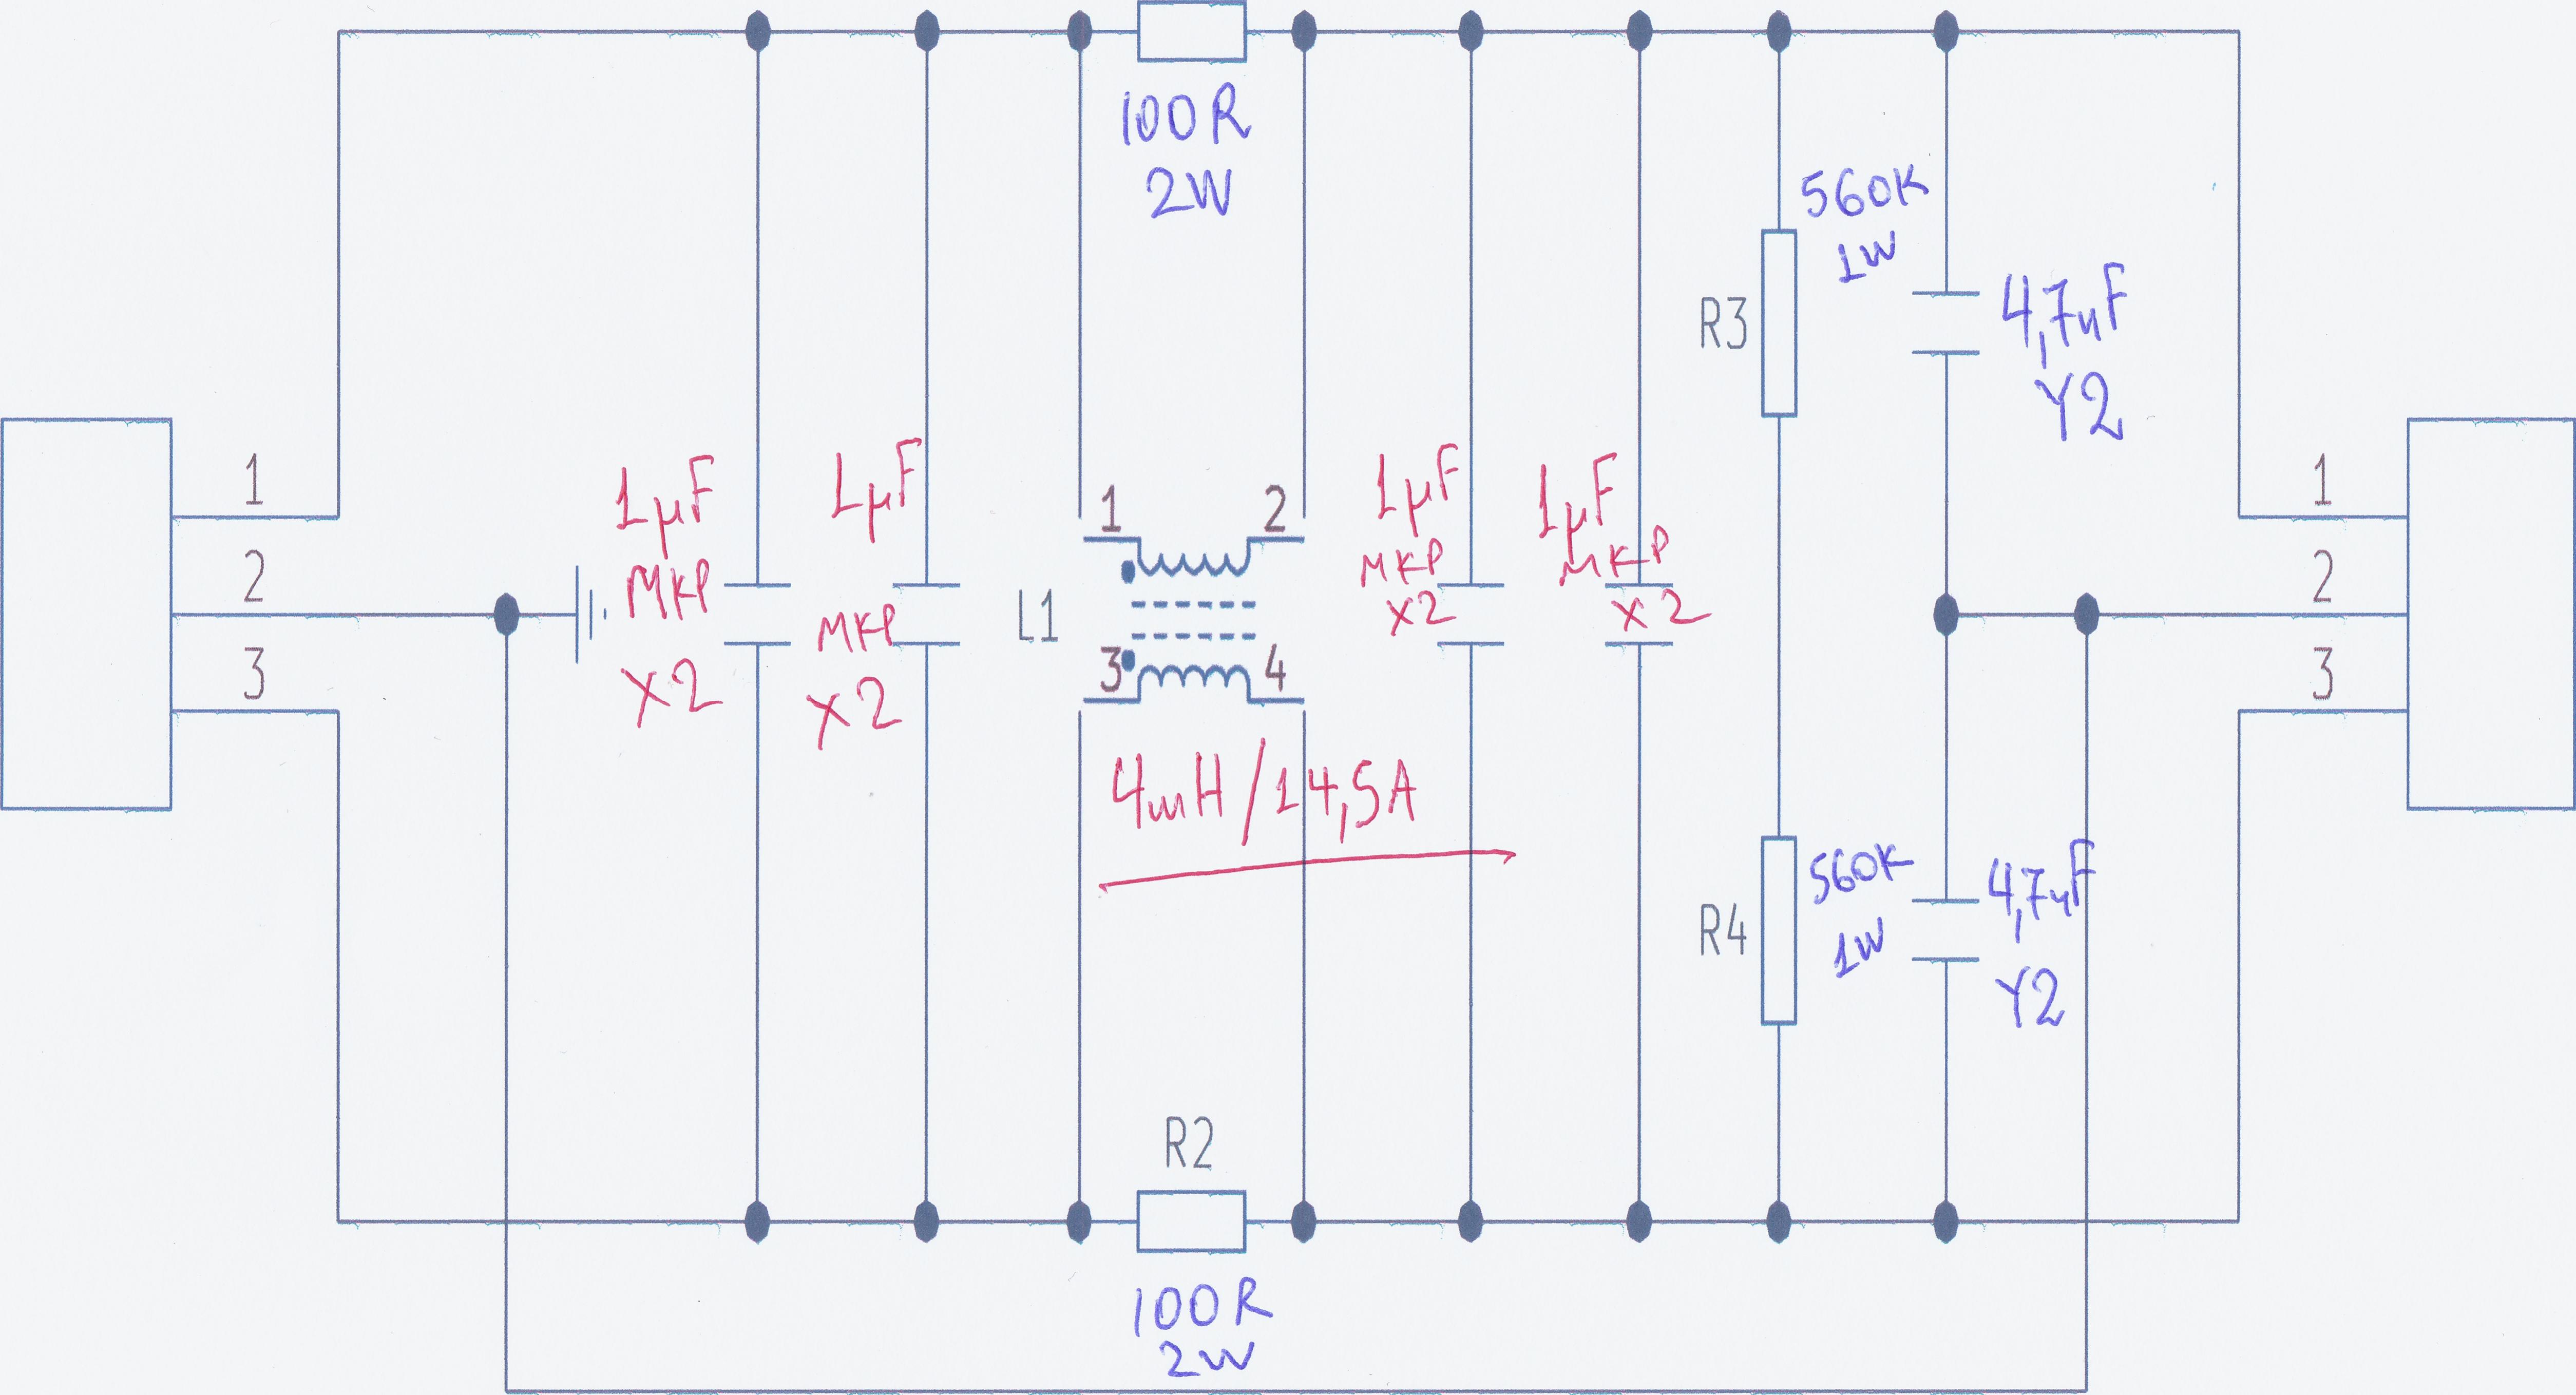 100R
2W
560K
1W
R3
4,7nF
Y2
1
2
3
1μF
MKP
X2
1μF
MKP
X2
L1
1
2
3
4
4mH/14,5A
1μF
MKP
X2
1μF
MKP
X2
1
2
3
R4
560K
1W
4,7nF
Y2
R2
100R
2W